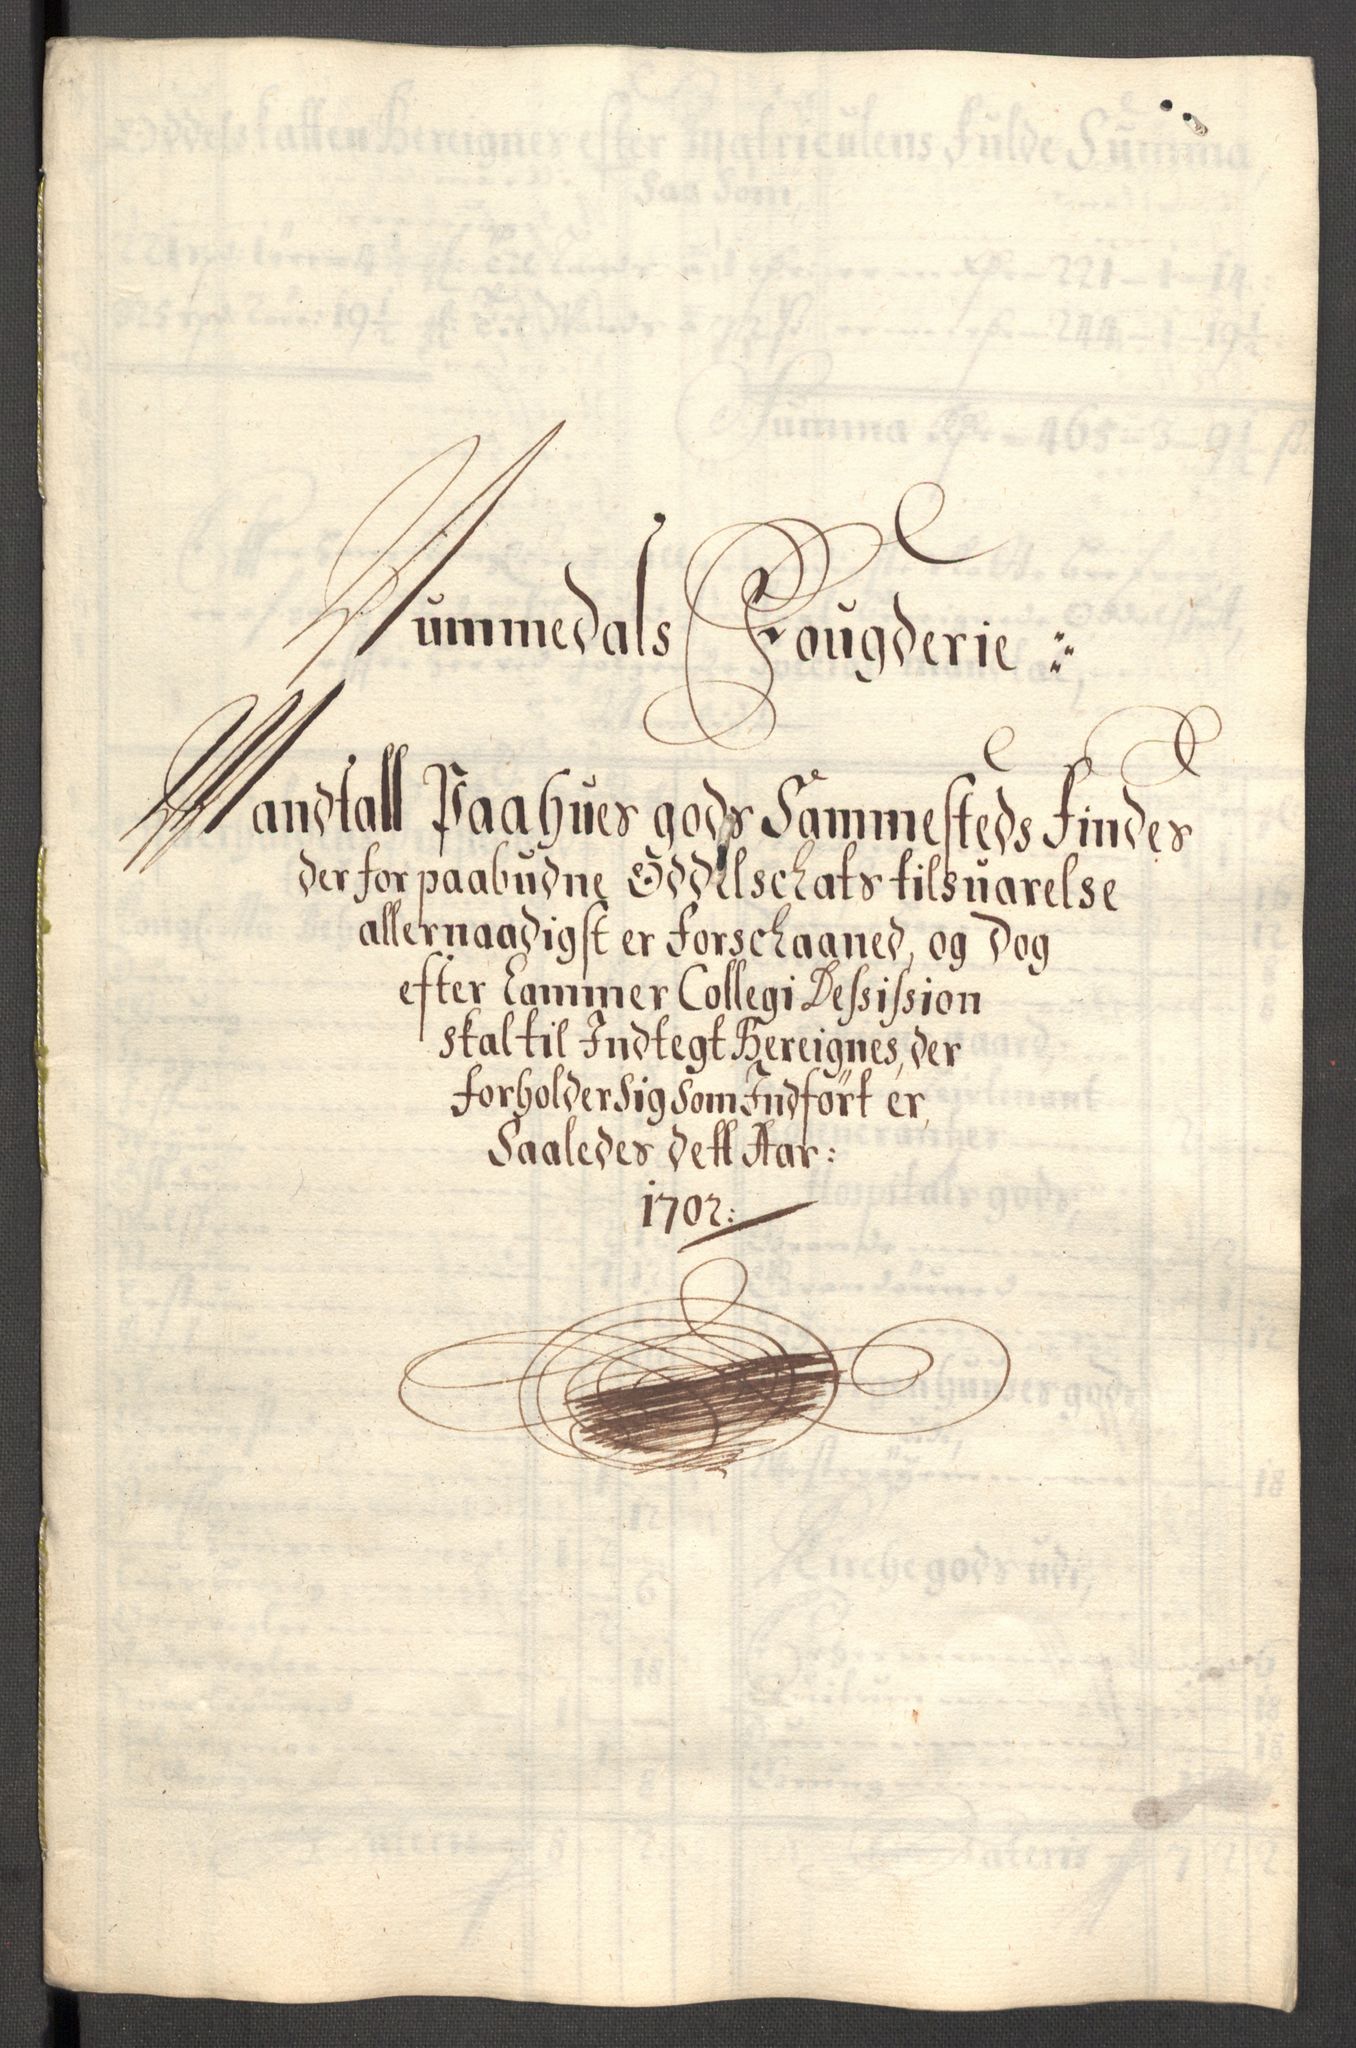 Nummedals Fougderie :
Mandtall Paa hues gods Sammesteds Findes
der for paabudne Oddelschats tilsuarelse
allernaadigst er forschaaned, og Dog
efter Cammer Collegi Dessission
skal til Indtegt Bereignes, der
forholder Sig Som Indført er,
Saaledes dett Aar:
1702: